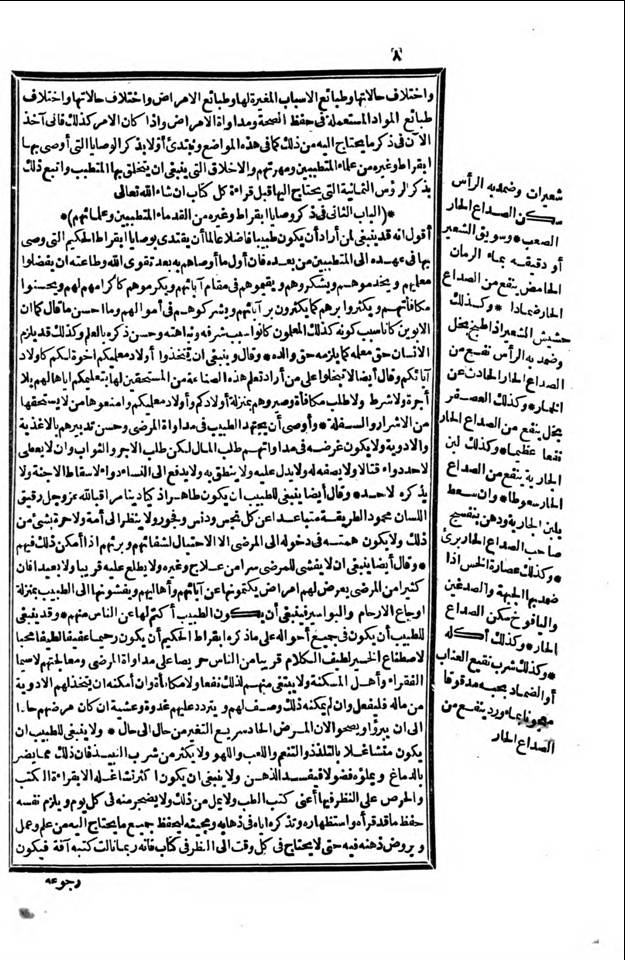 ٨
واختلاف حالاتها وطبائع الاسباب المغيرة لها وطبائع الامراض واختلاف حالاتها واختلاف
طبائع المواد المستعملة فى حفظ الصحة ومداواة الامراض واذا كان الامر كذلك فانى آخذ
الآن فى ذكر ما يحتاج اليه من ذلك كما فى هذه المواضع ونبتدئ أولا بذكر الوصايا التى أوصى بها
ابقراط وغيره من علماء المتطببين ومهرتهم والاخلاق التى ينبغى ان يتخلق بها المتطبب واتبع ذلك
بذكر الرؤس الثمانية التى يحتاج اليها قبل قراءة كل كتاب ان شاء الله تعالى
*(الباب الثانى فى ذكر وصايا ابقراط وغيره من القدماء المتطببين وعلمائهم)*
أقول انه قد ينبغى لمن أراد أن يكون طبيبا فاضلا عالما أن يقتدى بوصايا ابقراط الحكيم التى وصى
بها فى عهده الى المتطببين من بعده فان أول ما أوصاهم به بعد تقوى الله وطاعته ان يفضلوا
معلمهم ويخدموهم ويشكروهم ويقيموهم فى مقام آبائهم ويكرموهم كاكرامهم لهم ويحسنوا
مكافأتهم ويكثروا برهم كما يكثرون بر آبائهم ويشركوهم فى أموالهم وما احسن ما قال كما ان
الابوين كانا سبب كونه كذلك المعلمون كانوا سبب شرفه ونباهته وحسن ذكره بالعلم وكذلك قد يلزم
الانسان حق معلمه كما يلزمه حق والده * وقال وينبغى ان تتخذوا أولاد معلميكم اخوة لكم كاولاد
آبائكم وقال أيضا لا تبخلوا على من أراد تعلم هذه الصناعة من المستحقين لها بتعليمكم اياها لهم بلا
أجرة ولا شرط ولا طلب مكافأة وصيروهم بمنزلة أولادكم وأولاد معلميكم وامنعوها من لا يستحقها
من الاشرار والسفلة * وأوصى أن يجتهد الطبيب فى مداواة المرضى وحسن تدبيرهم بالاغذية
والادوية ولا يكون غرضه فى مداواتهم طلب المال لكن طلب الاجر والثواب وان لا يعطى
لاحد دواء قتالا ولا يصفه له ولا يدل عليه ولا ينطق به ولا يدفع الى النساء دواء لاسقاط الاجنة ولا
يذكره لاحد * وقال أيضا ينبغى للطبيب ان يكون طاهرا ذكيا دينا مراقبا لله عز وجل رقيق
اللسان محمود الطريقة متباعدا عن كل نجس ودنس وفجور ولا ينظر الى أمة ولا حرة بشئ من
ذلك ولا يكون همته فى دخوله الى المرضى الا الاحتيال لشفائهم وبرئهم اذا أمكن ذلك فيهم
* وقال أيضا ينبغى ان لا يفشى للمرضى سرا من علاج وغيره ولا يطلع عليه قريبا ولا بعيدا فان
كثيرا من المرضى يعرض لهم امراض يكتمونها عن آبائهم وأهاليهم ويفشونها الى الطبيب بمنزلة
اوجاع الارحام والبواسير فينبغى أن يكون الطبيب أكتم لها عن الناس منهم * وقد ينبغى
للطبيب أن يكون فى جميع أحواله على ما ذكره ابقراط الحكيم أن يكون رحيما عفيفا لطيفا محبا
لاصطناع الخير لطيف الكلام قريبا من الناس حريصا على مداواة المرضى ومعالجتهم لاسيما
الفقراء وأهل المسكنة ولا يبتغى منهم لذلك نفعا ولا مكافأة وان أمكنه ان يتخذ لهم الادوية
من ماله فليفعل وان لم يمكنه ذلك وصف لهم ويتردد عليهم غدوة وعشية ان كان مرضهم حادا
الى ان يبرؤا ويصحوا لان المرض الحاد سريع التغير من حال الى حال * ولا ينبغى للطبيب ان
يكون متشاغلا بالتلذذ والتنعم واللعب واللهو ولا يكثر من شرب النبيذ فان ذلك مما يضر
بالدماغ ويملؤه فضولا فيفسد الذهن ولا ينبغى ان يكون اكثر تشاغله الا بقراءة الكتب
والحرص على النظر فيها أعنى كتب الطب ولا يمل من ذلك ولا يضجر منه فى كل يوم ويلزم نفسه
حفظ ما قد قرأه واستظهاره وتذكره اياه فى ذهابه ومجيئه ليحفظ جميع ما يحتاج اليه من علم وعمل
ويروض ذهنه فيه حتى لا يحتاج فى كل وقت الى النظر فى كتاب فانه ربما نالت كتبه آفة فيكون
رجوعه
شعيرات وضمد به الرأس
سكن الصداع الحار
الصعب * وسويق الشعير
أو دقيقه بماء الرمان
الحامض ينفع من الصداع
الحار ضمادا * وكذلك
حشيش الشعير اذا طبخ بخل
وضمد به الرأس نفع من
الصداع الحار الحادث عن
الخمار * وكذلك العصفر
بخل ينفع من الصداع الحار
نفعا عظيما * وكذلك لبن
الجارية ينفع من الصداع
الحار سعوطا * وان سعط
بلبن الجارية ودهن بنفسج
صاحب الصداع الحار برئ
* وكذلك عصارة الخس اذا
ضمد بها الجبهة والصدغين
واليافوخ سكن الصداع
الحار * وكذلك أكله
* وكذلك شرب نقيع العناب
أو الضماد بحبه مدقوقا
معجونا بماء ورد ينفع من
الصداع الحار